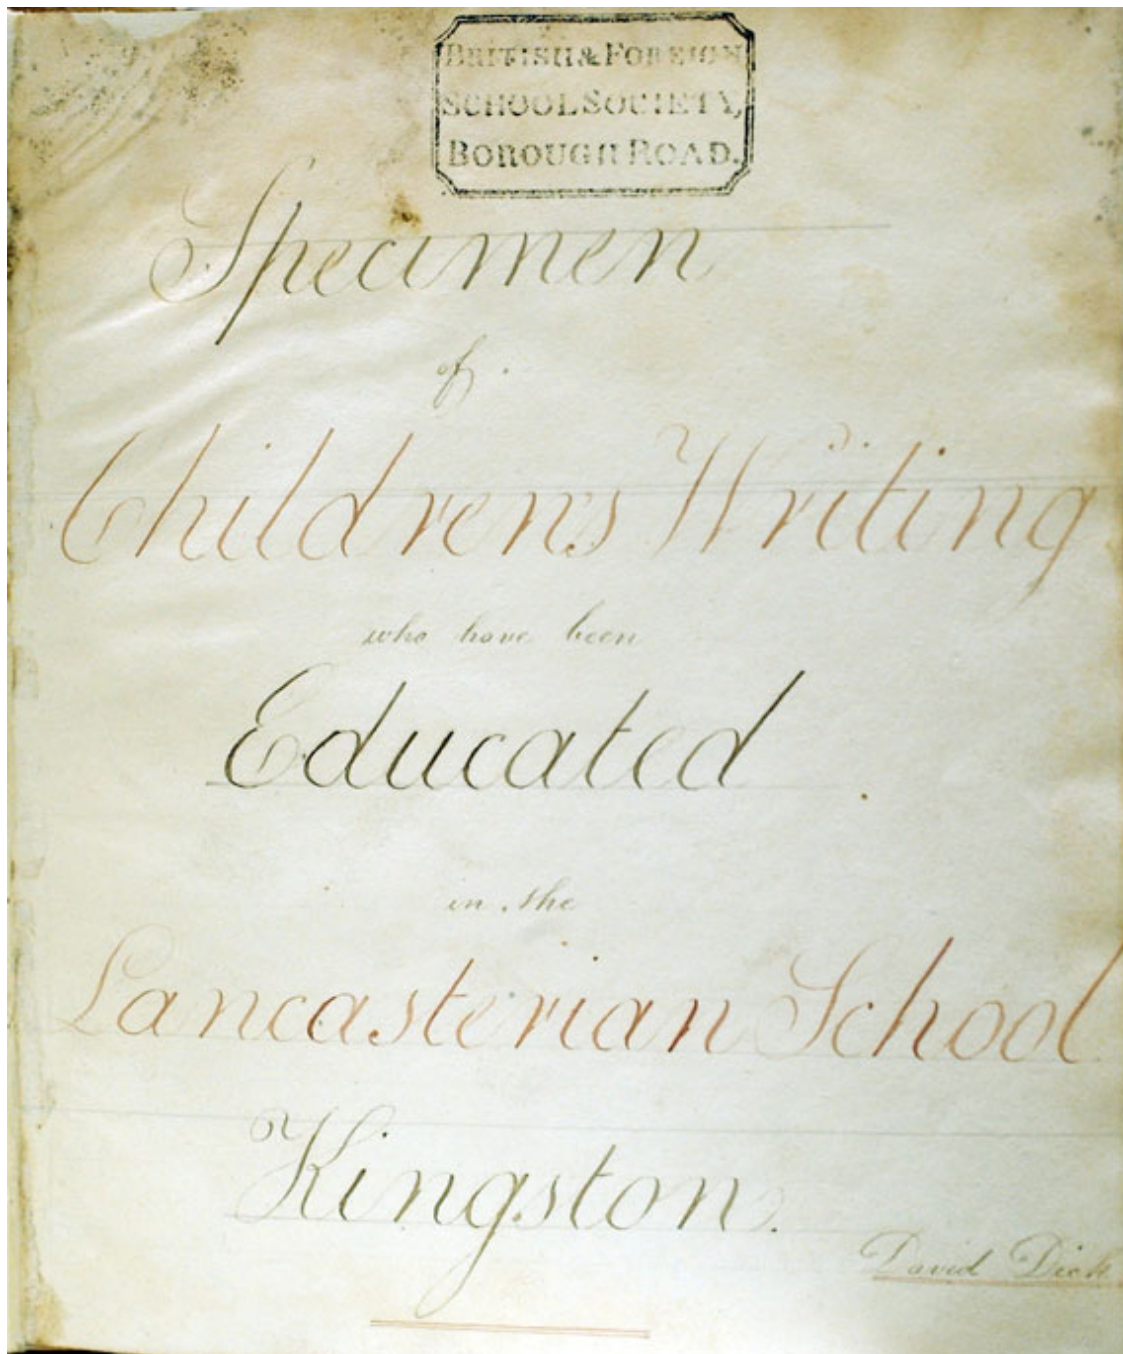 BRITISH & FOREIGN
SCHOOL SOCIETY,
BOROUGH ROAD.
Specimen
of
Children's Writing
who have been
Educated
in the
Lancasterian School
Kingston.
David Dick